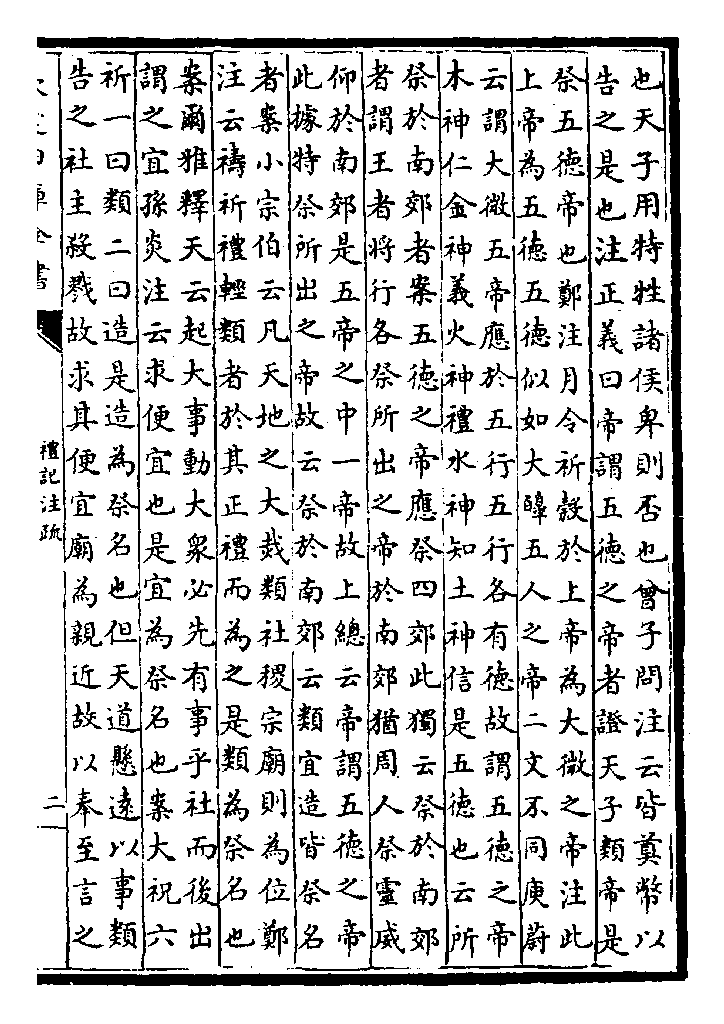 也天子用特牲諸侯卑則否也曾子問注云皆奠幣以
告之是也注正義曰帝謂五德之帝者證天子類帝是
祭五德帝也鄭注月令祈穀於上帝為大微之帝注此
上帝為五德五德似如大皥五人之帝二文不同庾蔚
云謂大微五帝應於五行五行各有德故謂五德之帝
木神仁金神義火神禮水神知土神信是五德也云所
祭於南郊者案五德之帝應祭四郊此獨云祭於南郊
者謂王者將行各祭所出之帝於南郊猶周人祭靈威
仰於南郊是五帝之中一帝故上總云帝謂五德之帝
此據特祭所出之帝故云祭於南郊云類宜造皆祭名
者案小宗伯云凡天地之大烖類社稷宗廟則為位鄭
注云禱祈禮輕類者於其正禮而為之是類為祭名也
案爾雅釋天云起大事動大衆必先有事乎社而後出
謂之宜孫炎注云求便宜也是宜為祭名也案大祝六
祈一曰類二曰造是造為祭名也但天道懸遠以事類
告之社主殺戮故求其便宜廟為親近故以奉至言之
禮記注疏
二